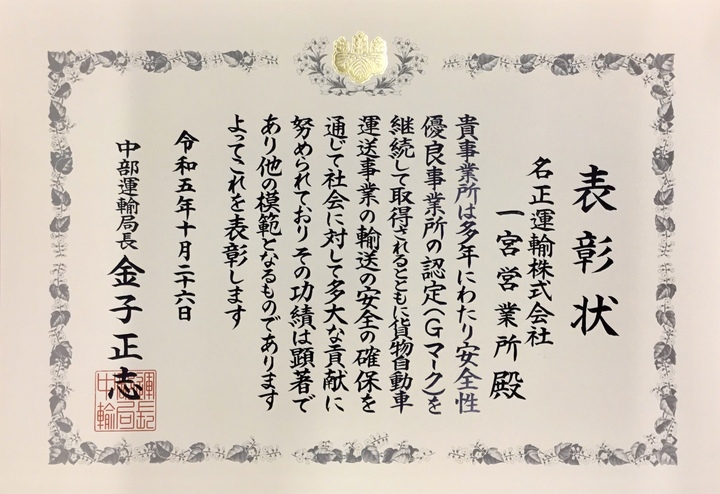 表彰状
名正運輸株式会社
一宮営業所 殿
貴事業所は多年にわたり安全性
優良事業所の認定(Gマーク)を
継続して取得されるとともに貨物自動車
運送事業の輸送の安全の確保を
通じて社会に対して多大な貢献に
努められておりその功績は顕著で
あり他の模範となるものであります
よってこれを表彰します
令和五年十月二十六日
中部運輸局長 金子正志